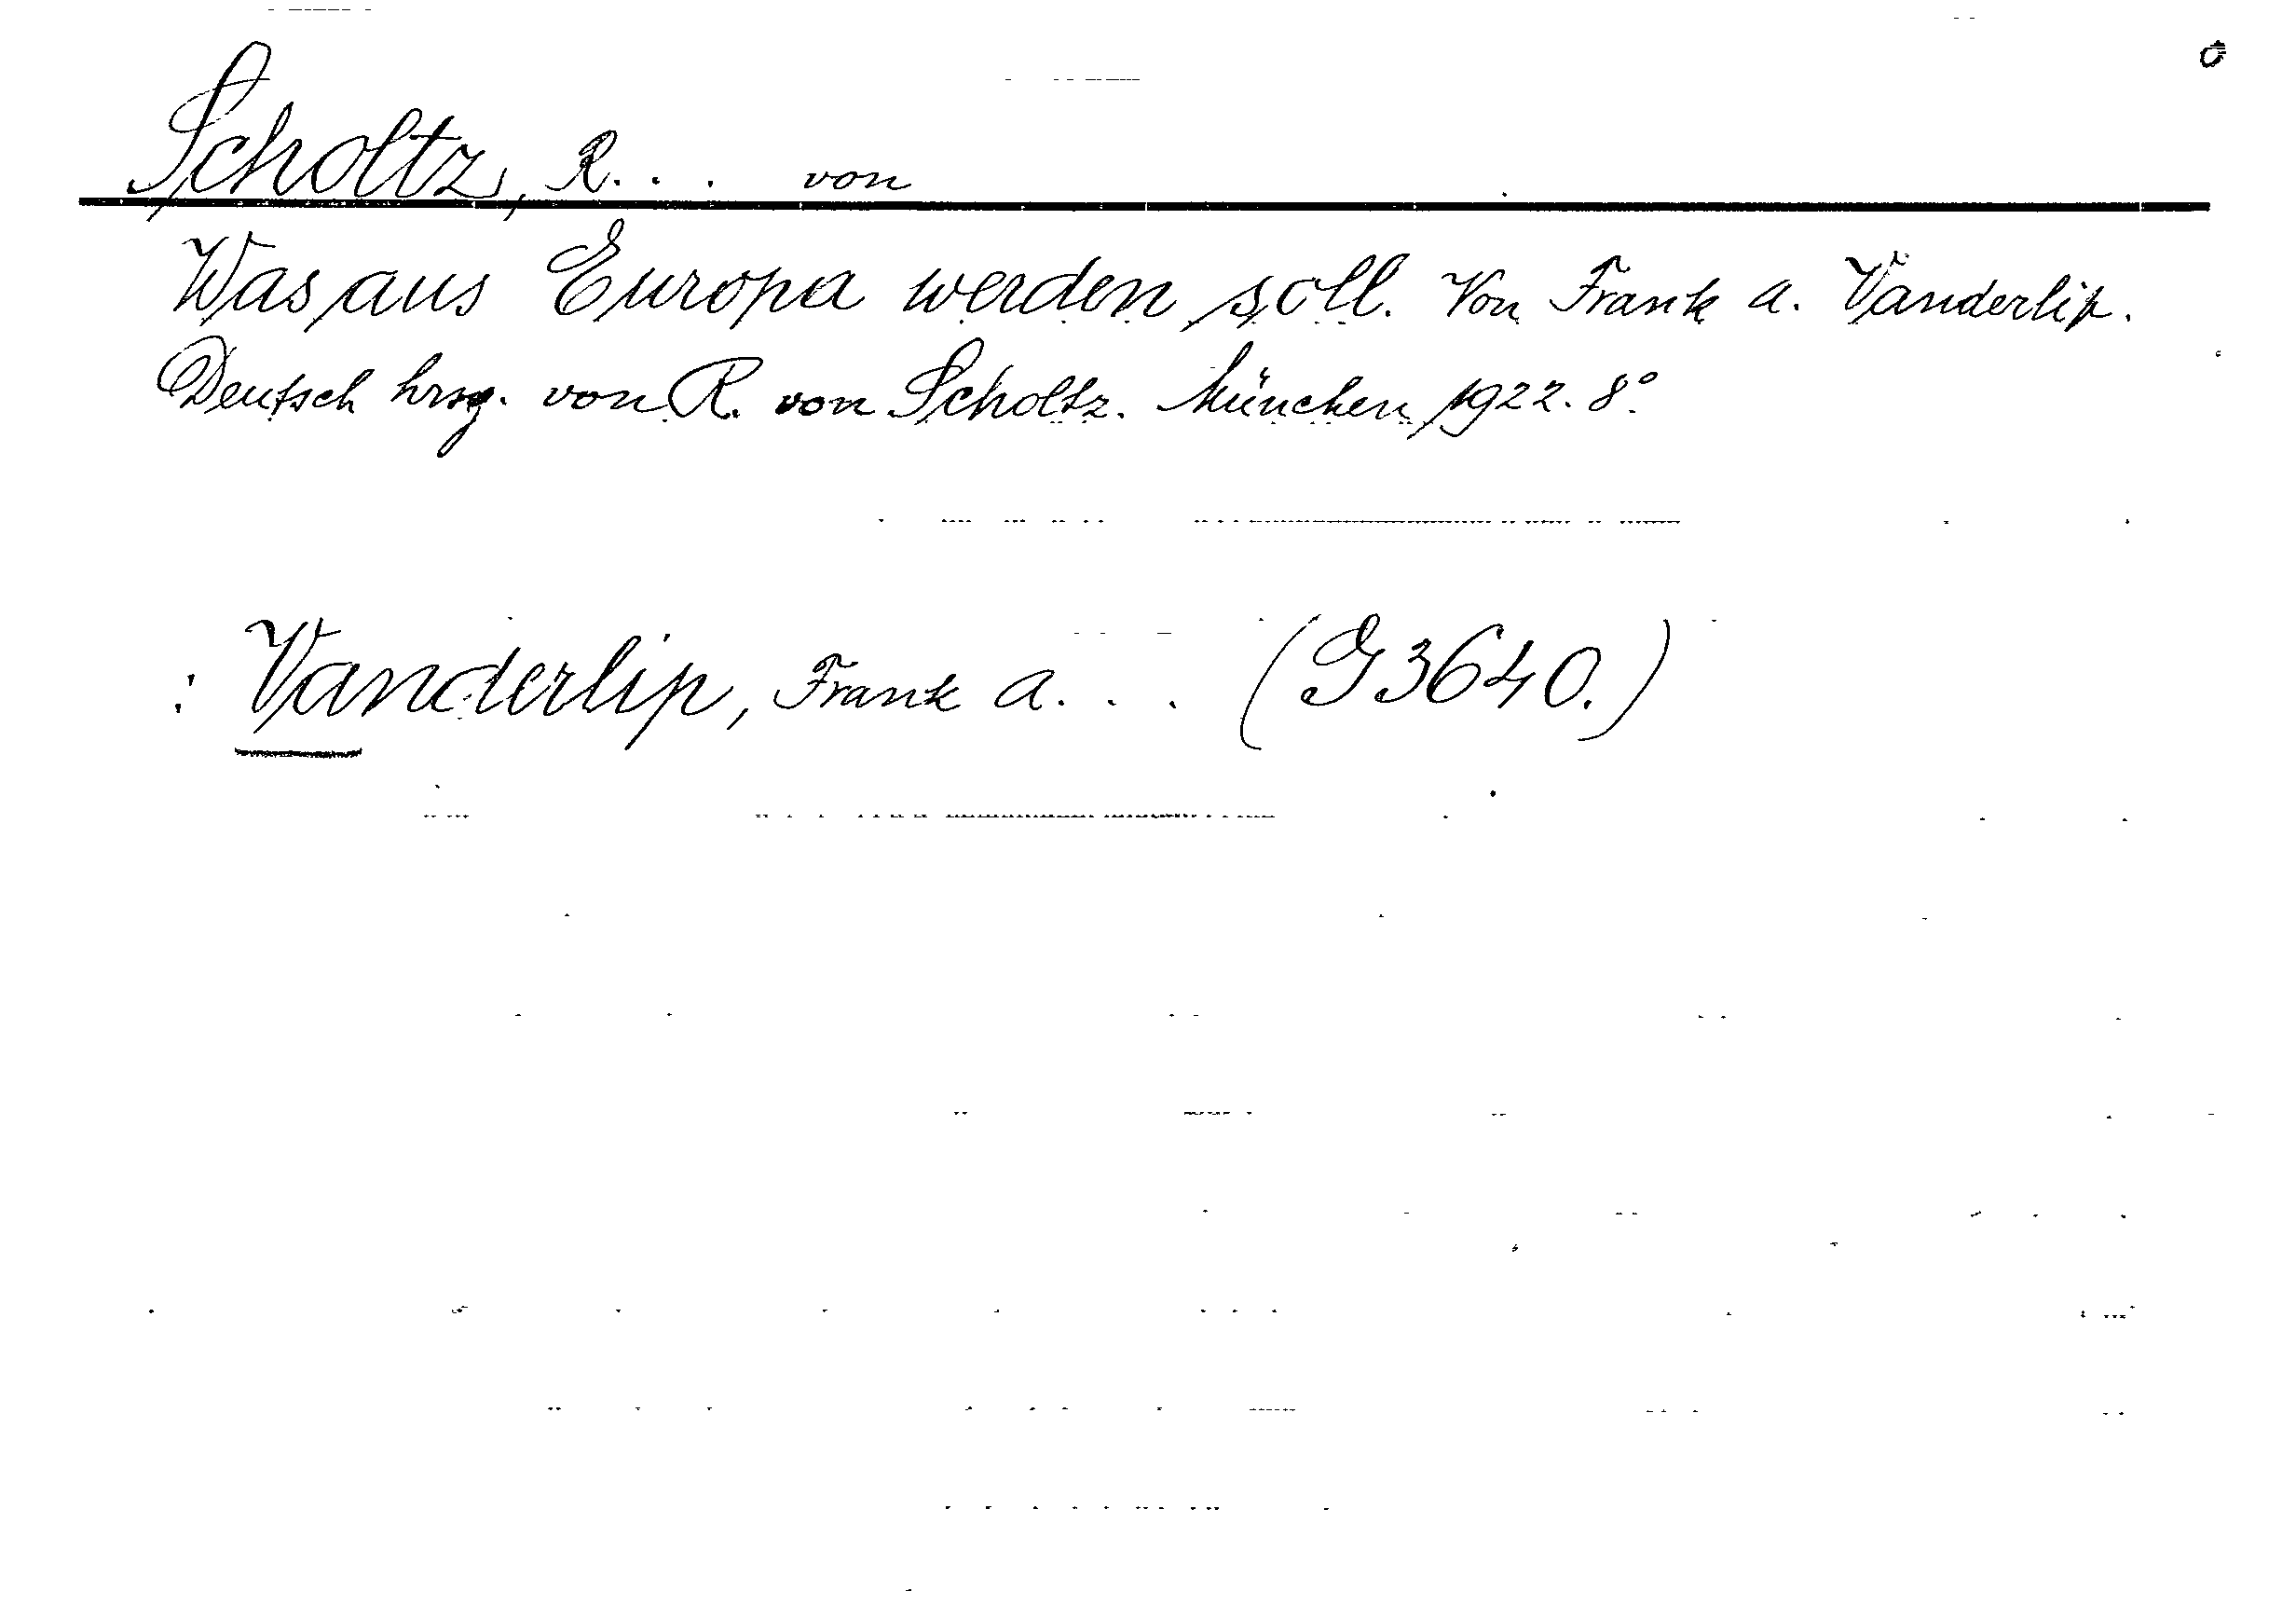 Scholtz, R. . . von
Was aus Europa werden soll. Von Frank A. Vanderlip.
Deutsch hrsg. von R. von Scholtz. München, 1922. 8°.
: Vanderlip, Frank A. . . (G 3640.)